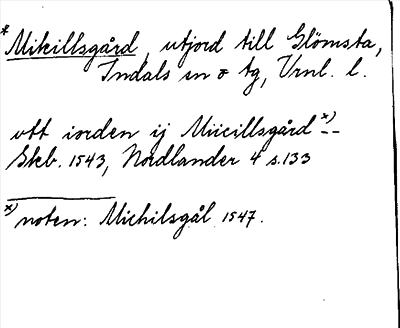 * Mikillsgård, utjord till Glömsta,
Indals sn o tg, Vrnl. l.
vtt iorden ij Miicillsgård x) --
Skb. 1543, Nordlander 4 s.133
x) noten: Michilsgål 1547.